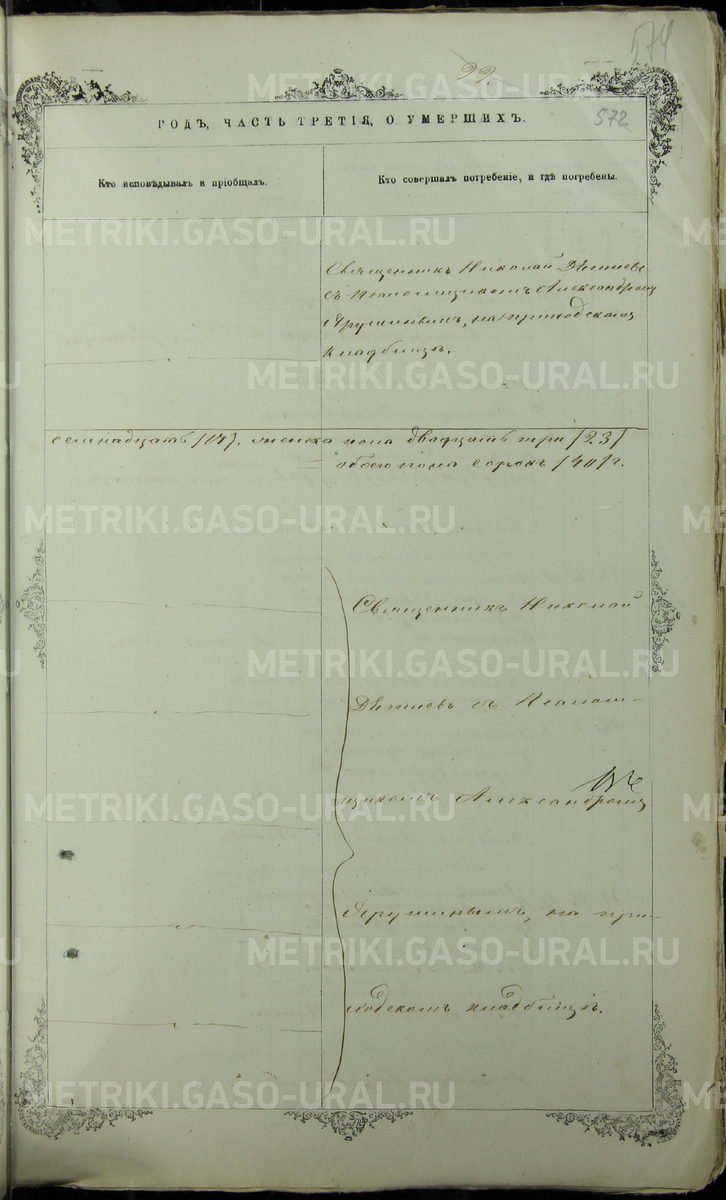 574
22.
ГОДЪ, ЧАСТЬ ТРЕТІЯ, О УМЕРШИХЪ.
572
Кто исповѣдывалъ и пріобщалъ.
Кто совершалъ погребеніе, и гдѣ погребены.
Священникъ Николай
съ Псаломщикомъ Александромъ
на приходскомъ
кладбищѣ.
семнадцать /17/, женска пола двадцать три /23/
обоего пола сорокъ /40/
Священникъ Николай
съ Псалом-
щикомъ Александромъ
на при-
ходскомъ кладбищѣ.
METRIKI.GASO-URAL.RU